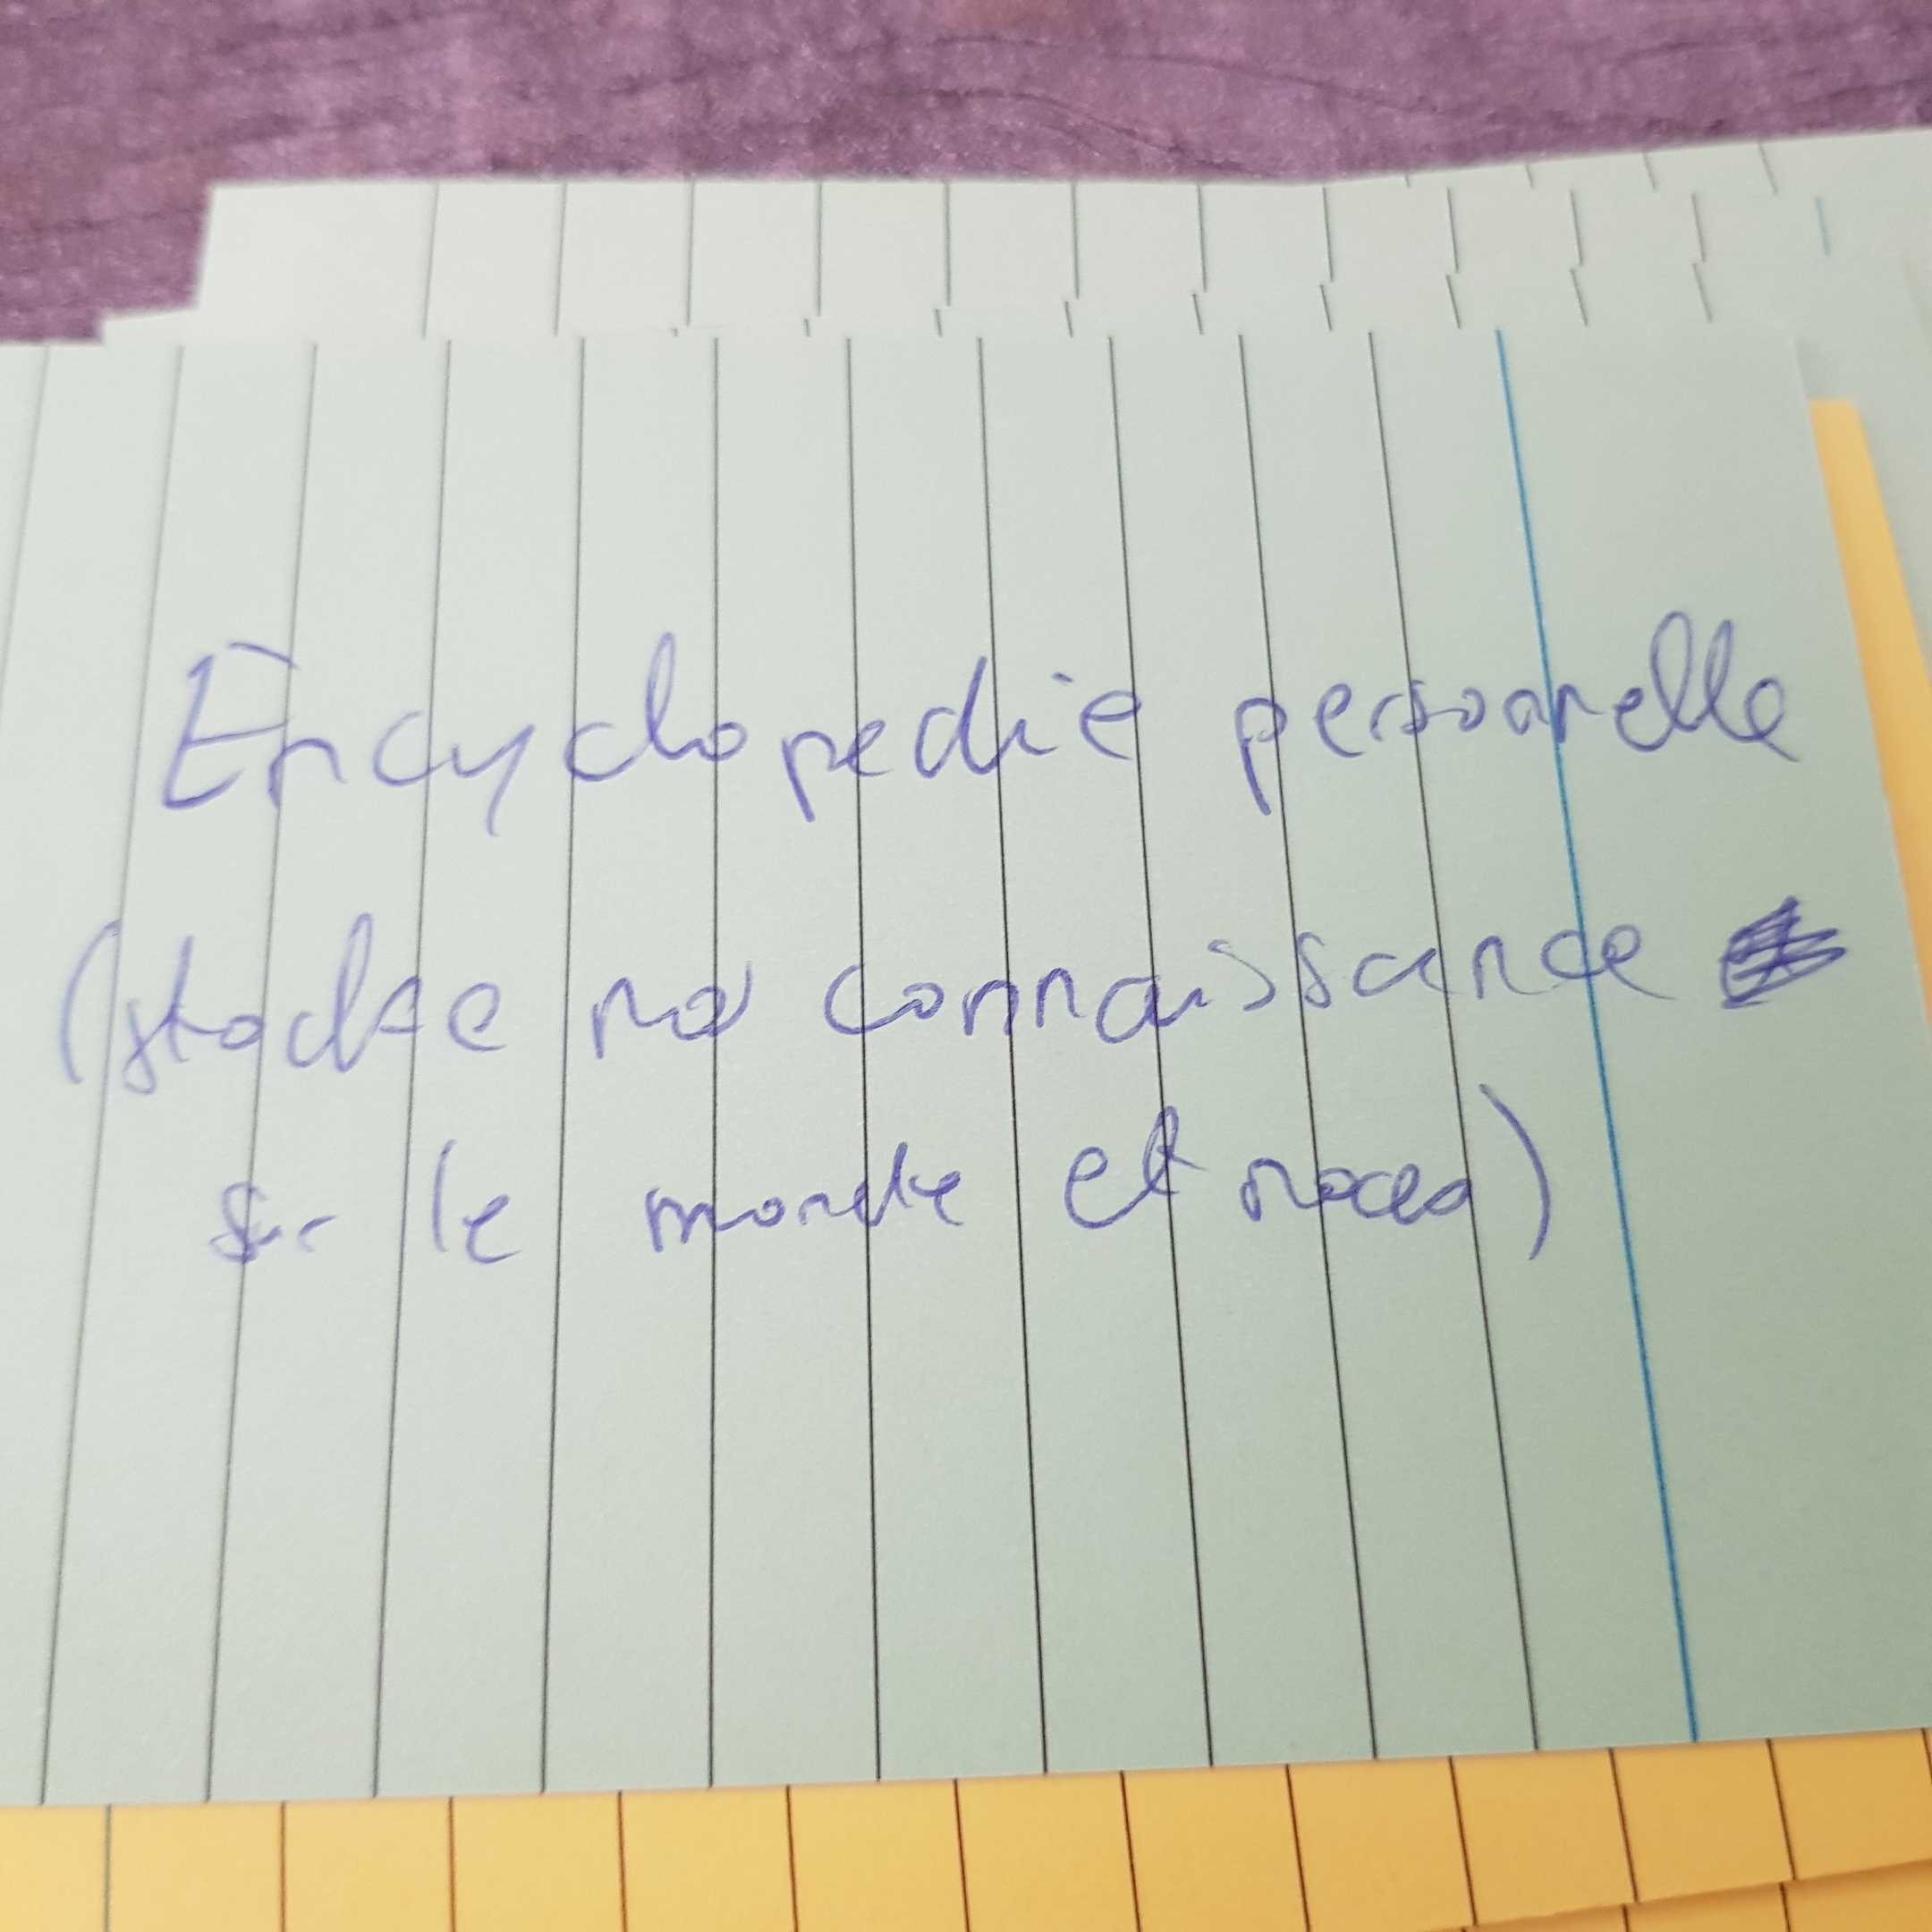 Encyclopedie personnelle
(stocke nos connaissance
sur le monde et